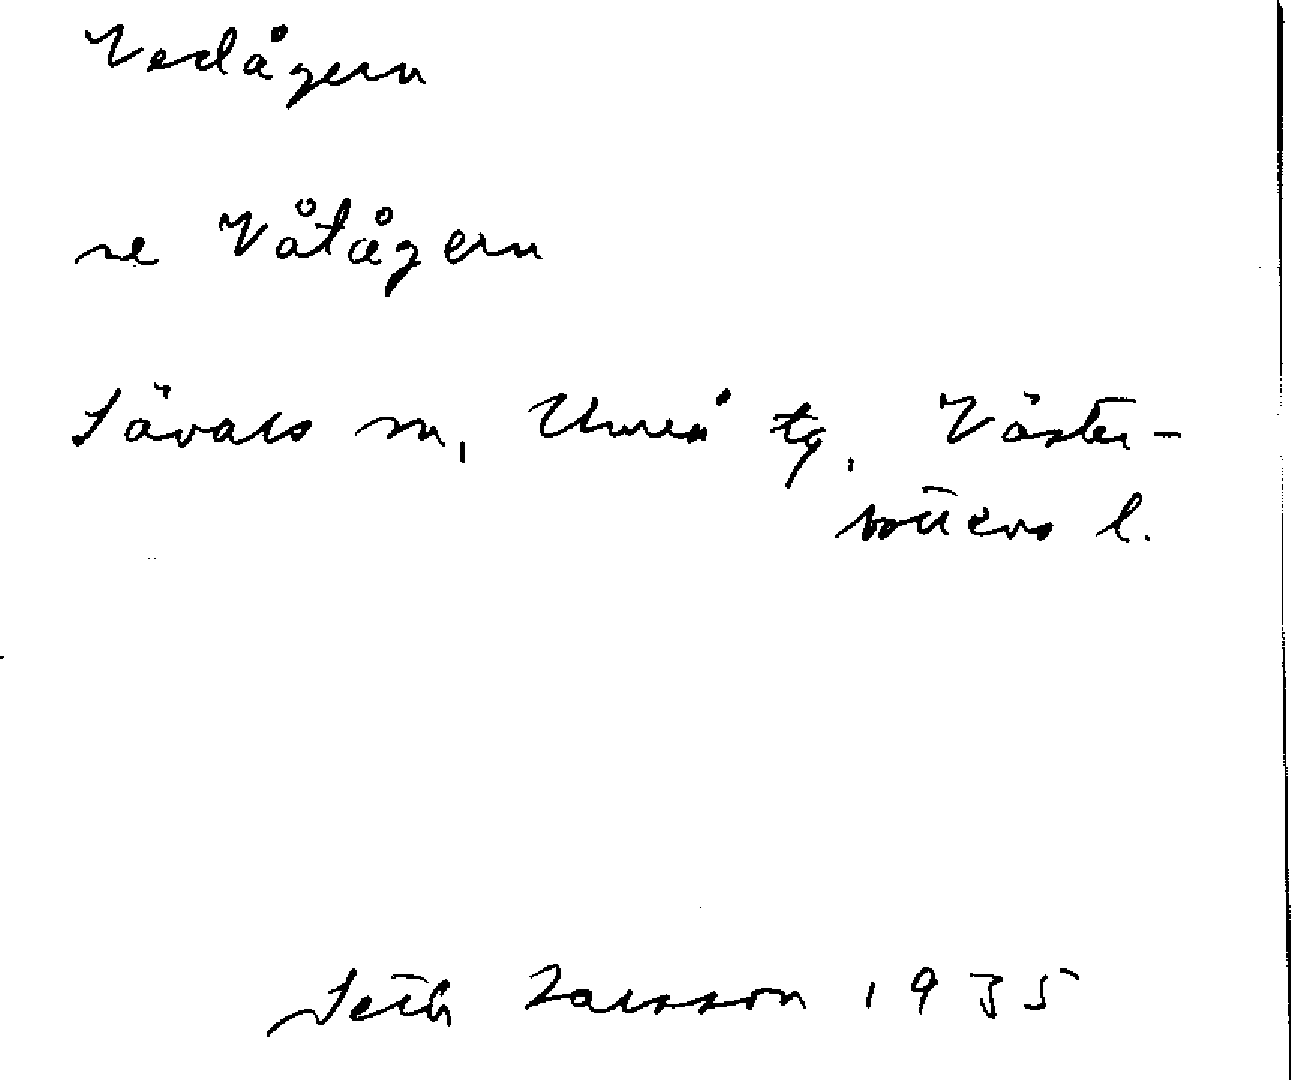 Vedågern
se Våtågern
Sävars sn, Umeå tg, Väster-
bottens l.
Seth Larsson 1935